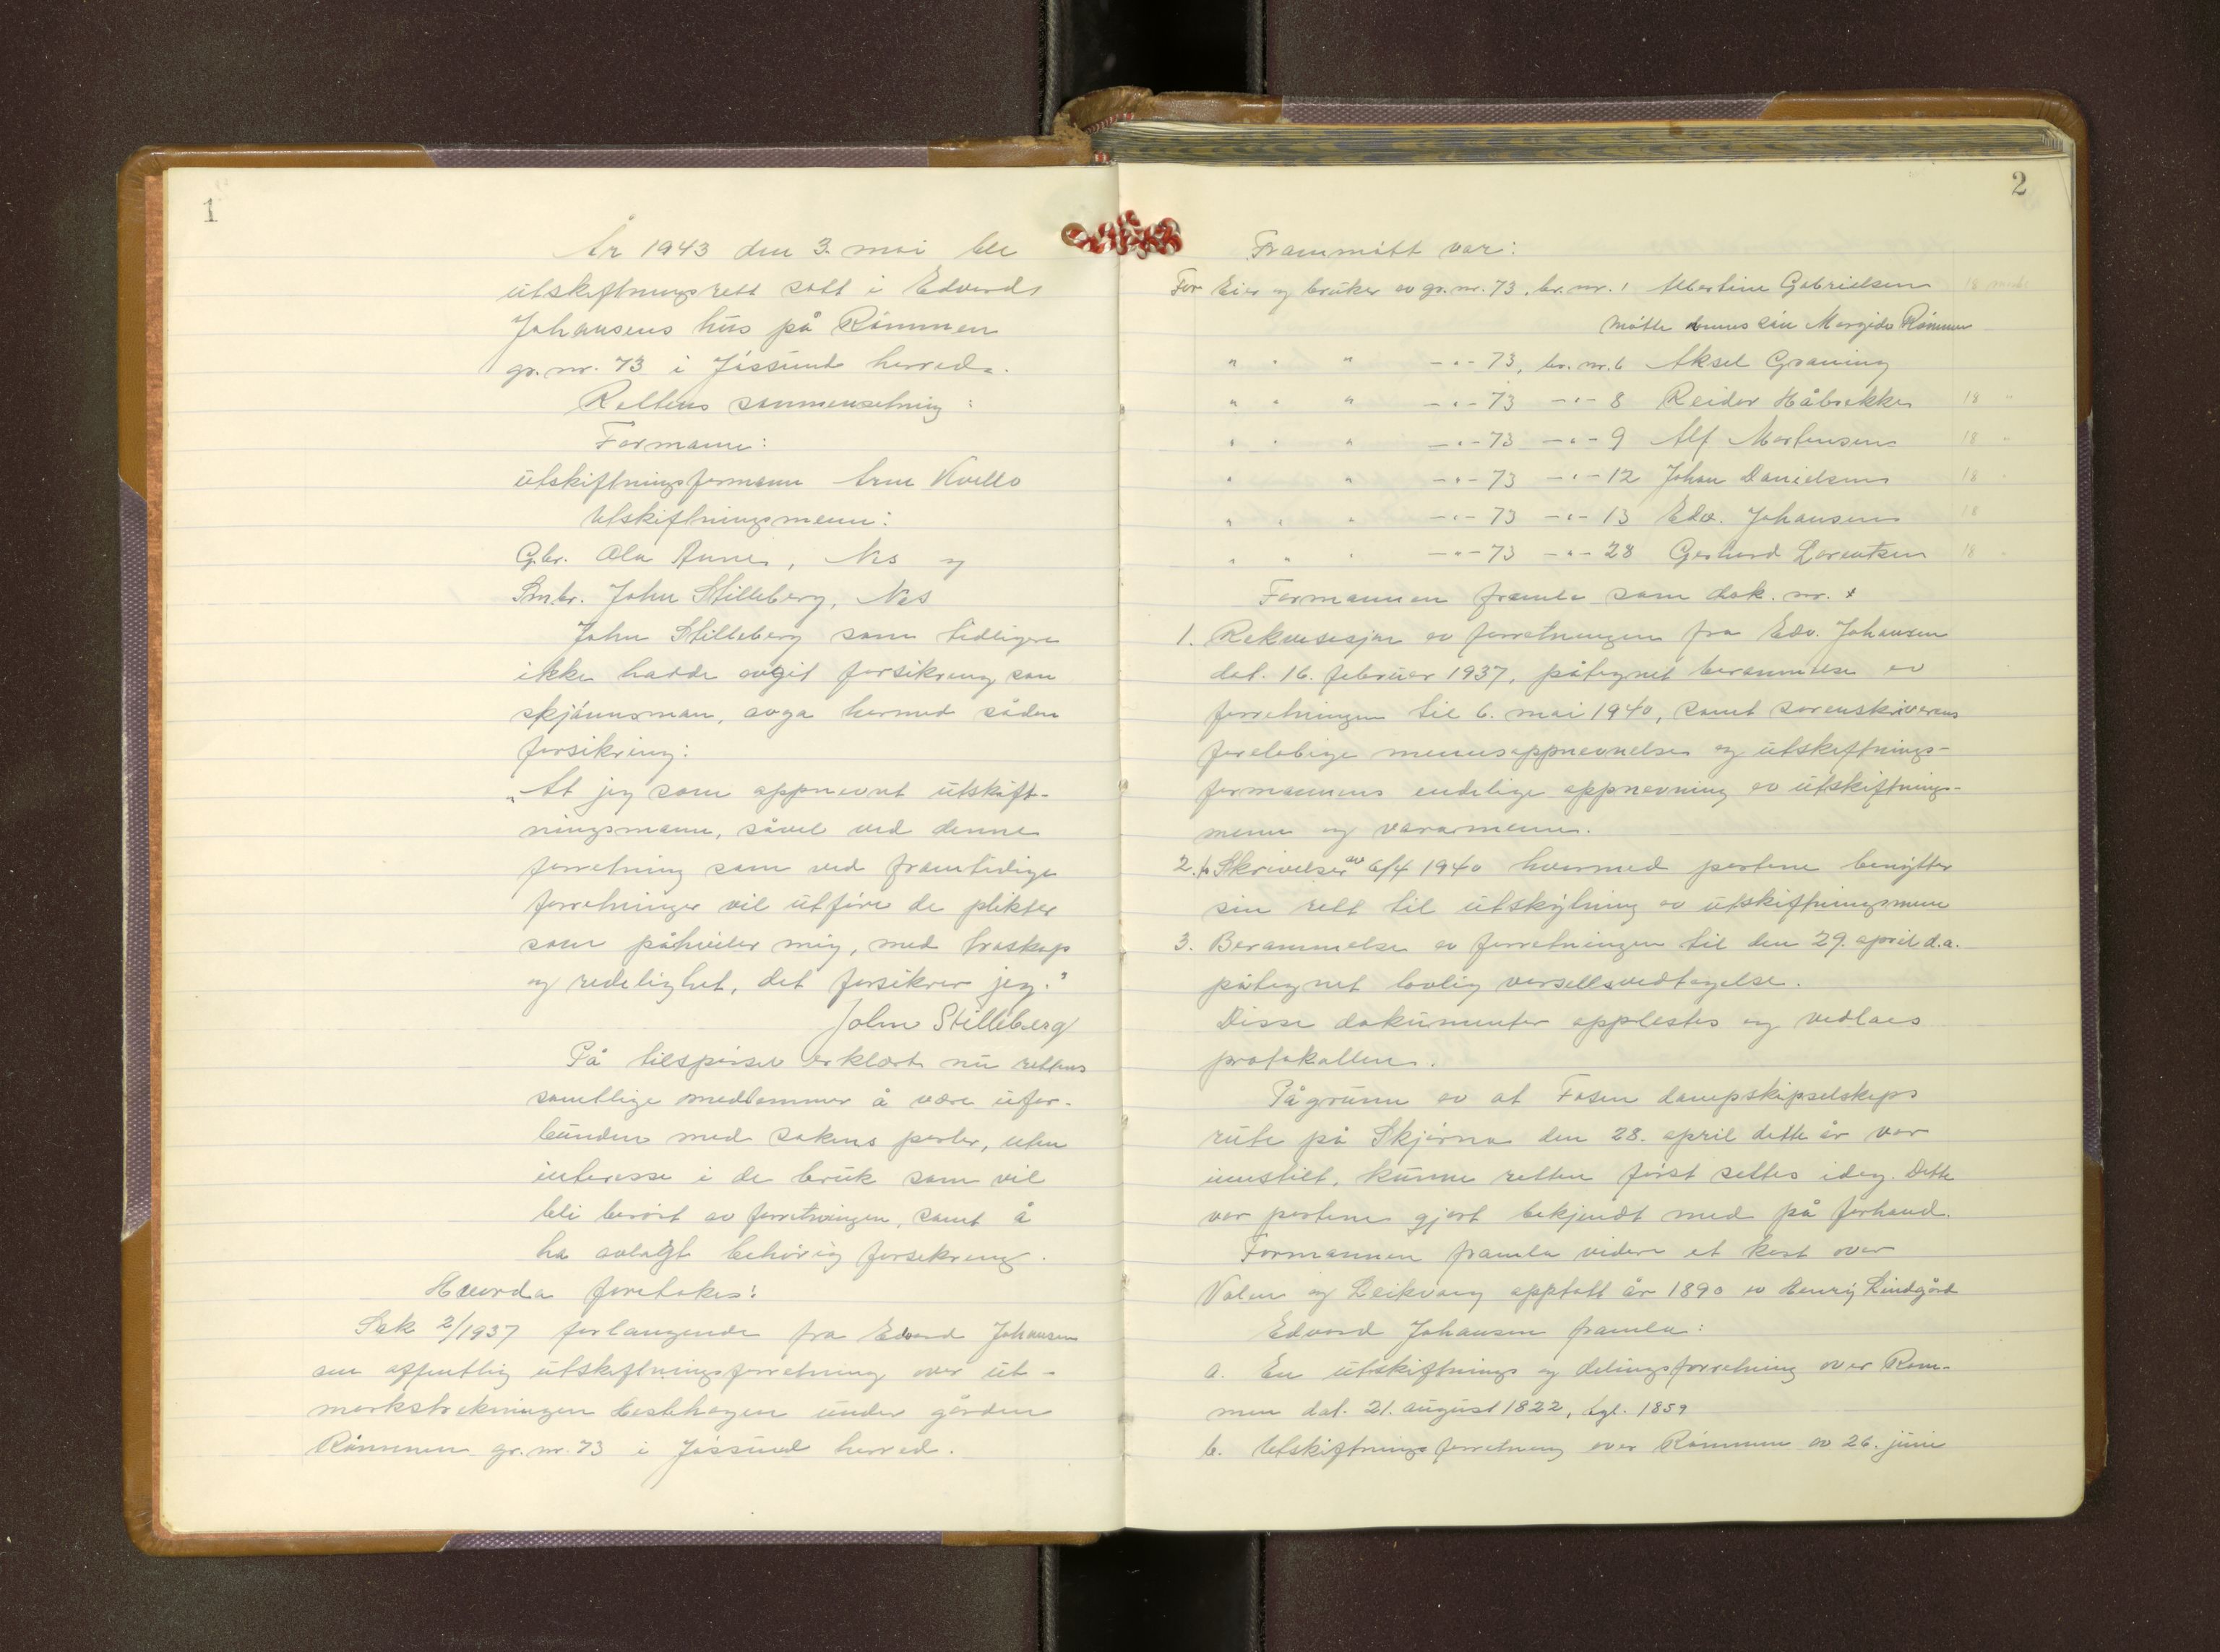 1
År 1943 den 3. mai ble
utskiftningsrett satt i Edvard
Johansens hus på Römmen
gr. nr. 73 i Jössund herred.
Rettens sammensetning:
Formann:
utskiftningsformann Arne Kvello
Utskiftningsmenn:
Gbr. Ola Aune, Nes og
Smbr. John Stilleberg, Nes
John Stilleberg som tidligere
ikke hadde avgit forsikring som
skjönnsman, avga hermed sådan
forsikring:
„At jeg som oppnevnt utskift-
ningsmann, såvel ved denne
forretning som ved framtidige
forretninger vil utföre de plikter
som påhviler mig, med troskap
og redelighet, det forsikrer jeg."
John Stilleberg
På tilspörsel erklærte nu rettens
samtlige medlemmer å være ufor-
bundne med sakens parter, uten
interesse i de bruk som vil
bli berört av forretningen, samt å
ha avlagt behörig forsikring.
Hvorda foretokes:
Sak 2/1937 forlangende fra Edvard Johansen
om offentlig utskiftningsforretning over ut-
markstrekningen Hestehagen under gården
Römmen gr. nr. 73 i Jössund herred.
2
Frammött var:
For Eier og bruker av gr. nr. 73, br. nr. 1 Albertine Gabrielsen
mötte dennes sön Margido Römmen
" " " -"- 73, br. nr. 6 Aksel Graning
" " " -"- 73 -"- 8 Reidar Håbrekke 18 "
" " " -"- 73 -"- 9 Alf Martinsen 18 "
" " -"- 73 -"- 12 Johan Danielsen 18 "
" " " -"- 73 -"- 13 Edv. Johansen 18
" " " -"- 73 -"- 28 Gerhard Lorentsen 18 "
Formannen framla som dok. nr.
1. Rekvisisjon av forretningen fra Edv. Johansen
dat. 16. februar 1937, påtegnet berammelse av
forretningen til 6. mai 1940, samt sorenskriverens
forelöbige mennsoppnevnelse og utskiftnings-
formannens endelige oppnevning av utskiftnings-
menn og varamenn.
2. Skrivelser av 6/4 1940 hvormed partene benytter
sin rett til utskytning av utskiftningsmenn
3. Berammelse av forretningen til den 29. april d.a.
påtegnet lovlig varsellsvedtagelse.
Disse dokumenter opplestes og vedlaes
protokollen.
På grunn av at Fosen dampskipselskaps
rute på Skjörna den 28. april dette år var
innstilt, kunne retten först settes idag. Dette
var partene gjort bekjendt med på forhånd.
Formannen framla videre et kart over
Valen og Leikvang opptatt år 1890 av Henry Lindgård
Edvard Johansen framla:
a. En utskiftnings og delingsforretning over Röm-
men dat. 21. august 1822, tgl. 1859
b. Utskiftningsforretning over Römmen av 26. juni